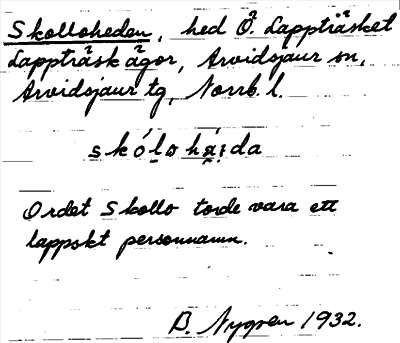 Skolloheden, hed Ö. Lappträsket
Lappträsk ägor, Arvidsjaur sn,
Arvidsjaur tg, Norrb. l.
skó̱lohá̱i̯da
Ordet Skollo torde vara ett
lappskt personnamn.
B. Nygren 1932.